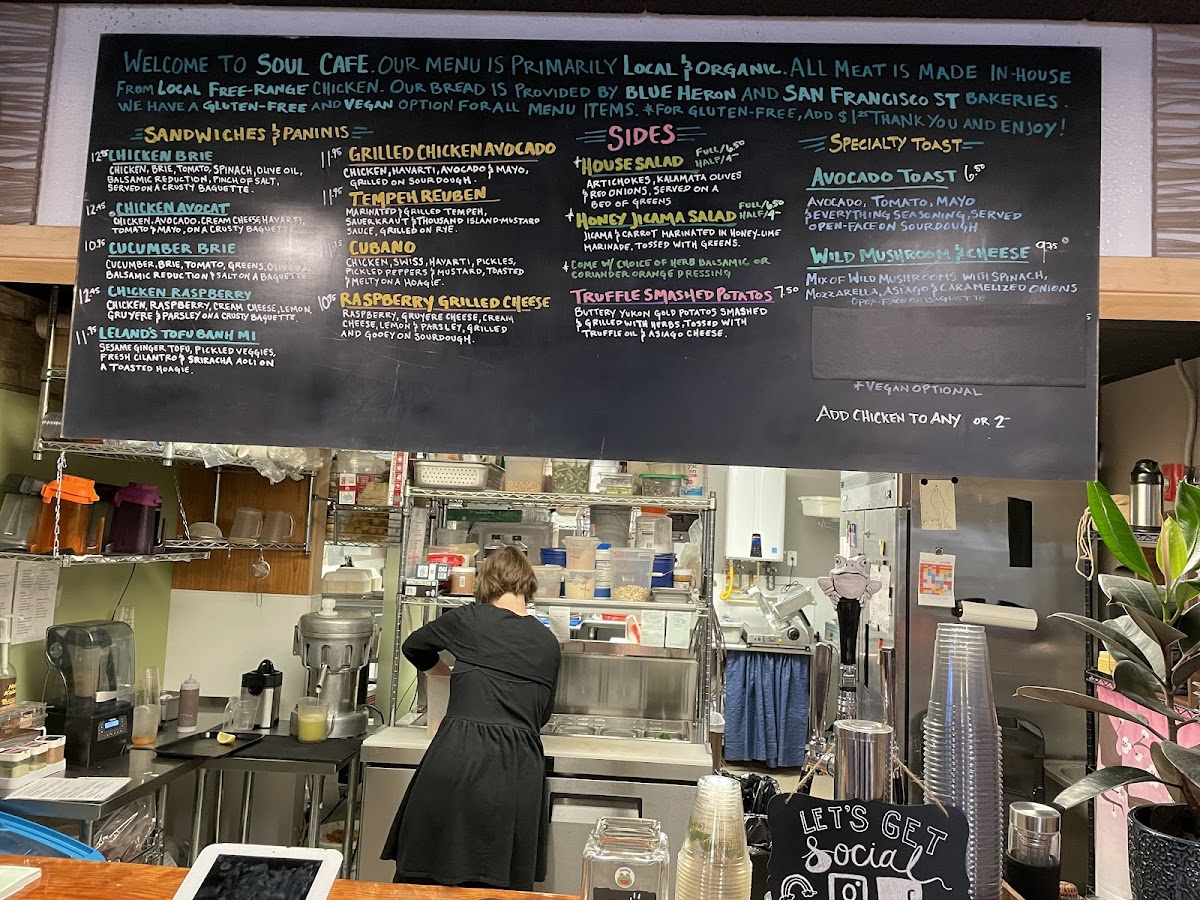 WELCOME TO SOUL CAFE. OUR MENU IS PRIMARILY LOCAL & ORGANIC. ALL MEAT IS MADE IN-HOUSE
FROM LOCAL FREE-RANGE CHICKEN. OUR BREAD IS PROVIDED BY BLUE HERON AND SAN FRANCISCO ST BAKERIES.
WE HAVE A GLUTEN-FREE AND VEGAN OPTION FOR ALL MENU ITEMS. *FOR GLUTEN-FREE, ADD $1.25 THANK YOU AND ENJOY!
SANDWICHES & PANINIS
12.95 CHICKEN BRIE
CHICKEN, BRIE, TOMATO, SPINACH, OLIVE OIL,
BALSAMIC REDUCTION, PINCH OF SALT,
SERVED ON A CRUSTY BAGUETTE.
12.45 CHICKEN AVOCAT
CHICKEN, AVOCADO, CREAM CHEESE, HAVARTI,
TOMATO & MAYO, ON A CRUSTY BAGUETTE
10.95 CUCUMBER BRIE
CUCUMBER, BRIE, TOMATO, GREENS, OLIVE
BALSAMIC REDUCTION & SALT ON A BAGUETTE
12.45 CHICKEN RASPBERRY
CHICKEN, RASPBERRY, CREAM CHEESE, LEMON,
GRUYERE & PARSLEY ON A CRUSTY BAGUETTE.
11.75 LELAND'S TOFU BANH MI
SESAME GINGER TOFU, PICKLED VEGGIES,
FRESH CILANTRO & SRIRACHA AOLI ON
A TOASTED HOAGIE.
11.95 GRILLED CHICKEN AVOCADO
CHICKEN, HAVARTI, AVOCADO & MAYO,
GRILLED ON SOURDOUGH.
11.95 TEMPEH REUBEN
MARINATED & GRILLED TEMPEH,
SAUERKRAUT & THOUSAND ISLAND MUSTARD
SAUCE, GRILLED ON RYE.
CUBANO
CHICKEN, SWISS, HAVARTI, PICKLES,
PICKLED PEPPERS & MUSTARD, TOASTED
& MELTY ON A HOAGIE.
10.95 RASPBERRY GRILLED CHEESE
RASPBERRY, GRUYERE CHEESE, CREAM
CHEESE, LEMON & PARSLEY, GRILLED
AND GOOEY ON SOURDOUGH.
SIDES
+HOUSE SALAD FULL/6.50
HALF/4-
ARTICHOKES, KALAMATA OLIVES
& RED ONIONS, SERVED ON A
BED OF GREENS
*HONEY JICAMA SALAD FULL/6.50
HALF/4-
JICAMA & CARROT MARINATED IN HONEY-LIME
MARINADE, TOSSED WITH GREENS.
+ COME W/ CHOICE OF HERB BALSAMIC OR
CORIANDER ORANGE DRESSING
TRUFFLE SMASHED POTATOS 7.50
BUTTERY YUKON GOLD POTATOS SMASHED
& GRILLED WITH HERBS, TOSSED WITH
TRUFFLE OIL & ASIAGO CHEESE.
SPECIALTY TOAST
AVOCADO TOAST 6.50
AVOCADO, TOMATO, MAYO
& EVERYTHING SEASONING, SERVED
OPEN-FACE ON SOURDOUGH
WILD MUSHROOM & CHEESE 9.75
MIX OF WILD MUSHROOMS WITH SPINACH,
MOZZARELLA, ASIAGO & CARAMELIZED ONIONS
OPEN-FACE ON BAGUETTE
+VEGAN OPTIONAL
ADD CHICKEN TO ANY OR 2-
LET'S GET
Social